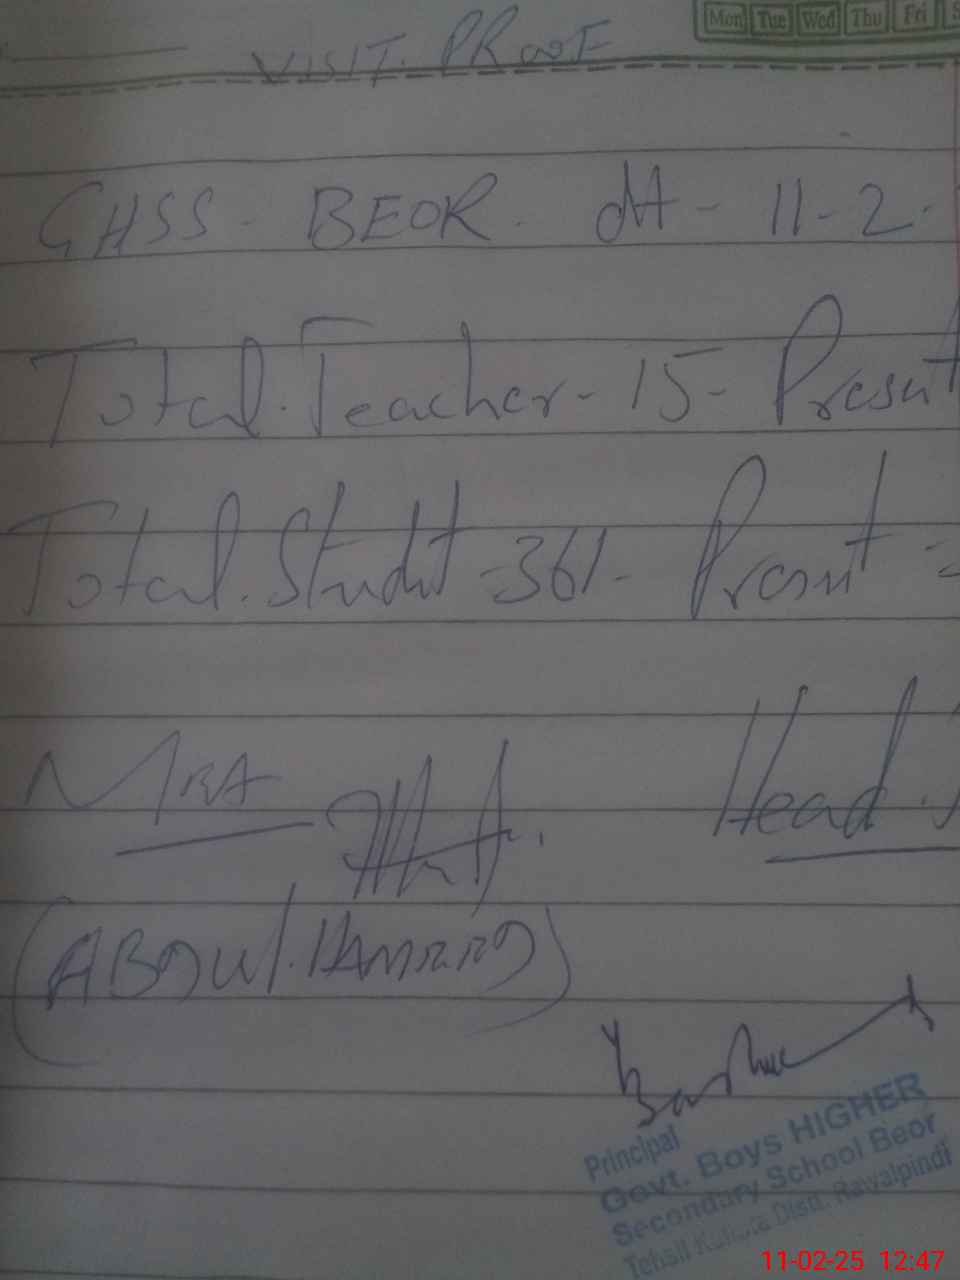 Mon Tue Wed Thu Fri S
VISIT. PROOF
GHSS - BEOR. dt - 11-2-
Total. Teacher - 15 - Present
Total. Studnt - 361 - Present =
MEA
Head.
(ABDUL. HAMEED)
Principal
Govt. Boys HIGHER
Secondary School Beor
Tehsil Distt. Rawalpindi
11-02-25 12:47